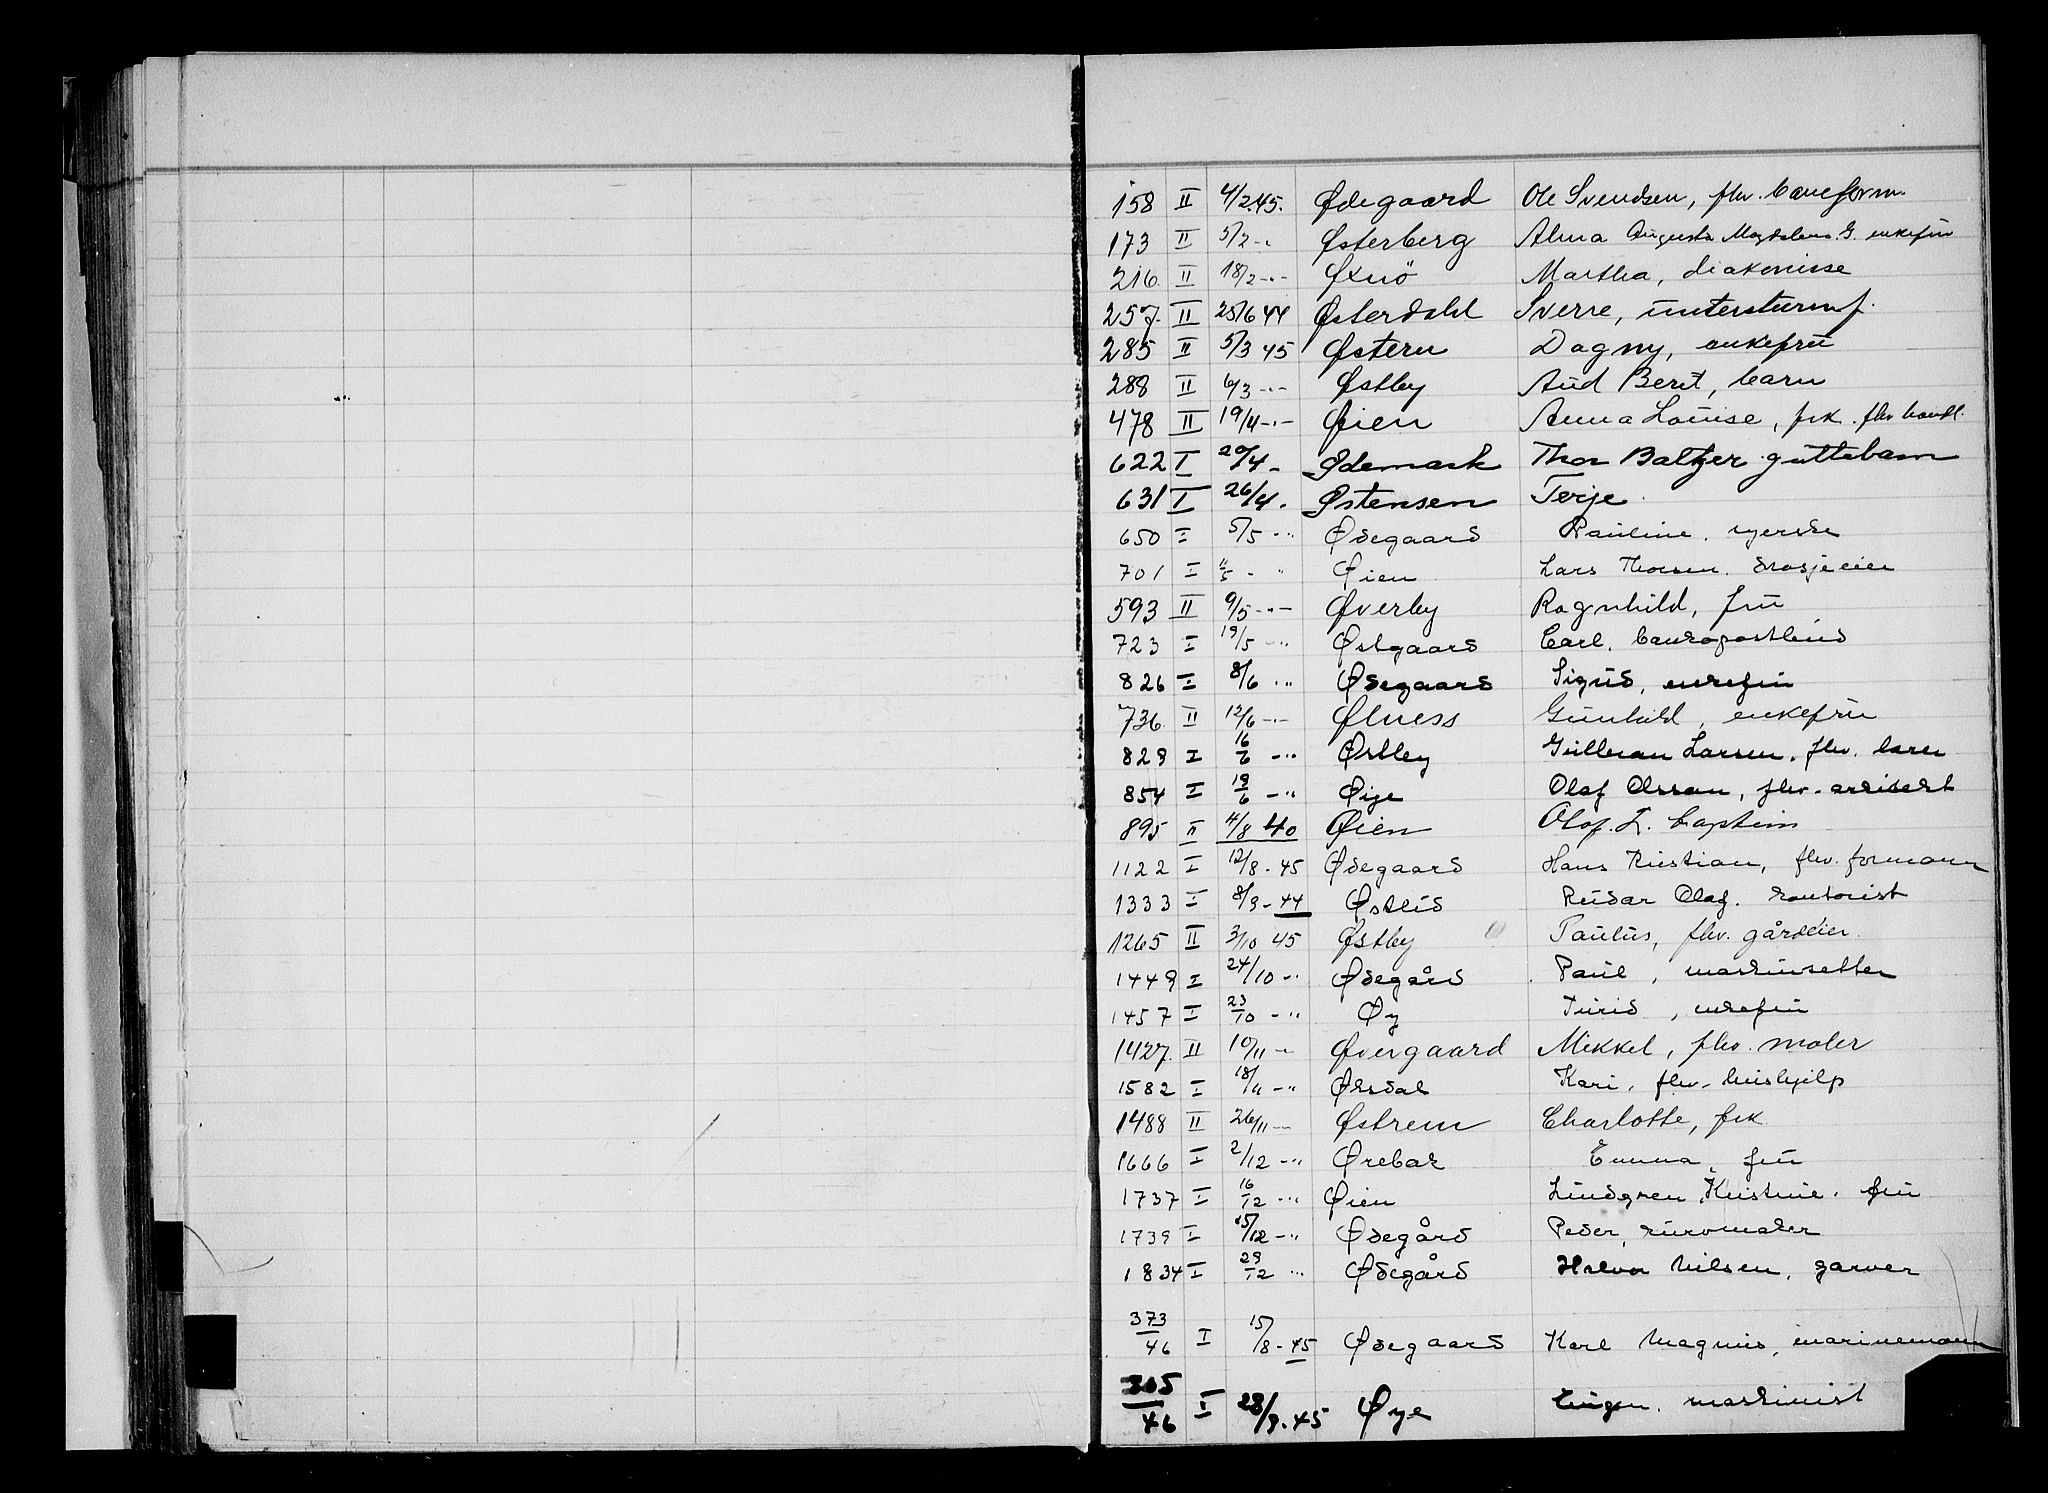 158 II 4/2.45. Ødegaard Ole Svendsen, fhv. baneform.
173 II 5/2 -„- Østerberg Alma Augusta Magdalena G. enkefru
216. II 18/2 -„- Øxnö Martha, diakonisse
257. II 25/6 44 Østerdahl Sverre, untersturmf.
285 II 5/3 45 Østern Dagny, enkefru
288 II 6/3 -„- Østby Aud Berit, barn
478 II 19/4 -„- Øien Anna Louise, frk. fhv handl.
622 I 20/4 - Ødemark Thor Baltzer guttebarn
631 I 26/4. Østensen Terje.
650 I 5/5 -„ Ødegaard Pauline, syerske
701 I 11/5 -„ Øien Lars Thorsen, drosjeeier
593 II 9/5 -„- Øverby Ragnhild, fru
723 I 19/5 -„ Østgaard Carl, landpostbud
826 I 8/6 -„ Ødegaard Sigrid, enkefru
736. II 12/6 -„- Ølness Gunhild, enkefru
829 I 16/6 -„ Østby Gulbran Larsen, fhv.
854 I 19/6 -„ Øije Olaf Olsson, fhv.
895 II 4/8 40 Øien Olaf. T. Captein
1122 I 12/8 - 45 Ødegaard Hans Kristian, fhv. formann
1333 I 8/9 - 44 Østlid Reidar Olaf. kontorist
1265 II 3/10 45 Østby Paulus, fhv. gårdeier.
1449 I 24/10 -„ Ødegård Paul, maskinsetter
1457 I 23/10 -„ Øy Turid, enkefru
1427. II 10/11 -„ Øvergaard Mikkel, fhv. maler
1582 I 18/11 -„ Øksdal Kari, fhv. hushjelp
1488 II 26/11 -„- Østrem Charlotte, frk
1666 I 2/12 -„ Ørebak Emma, fru
1737 I 16/12 -„ Øien Lindgren Kristine, fru
1739 I 15/12 -„ Ødegård Peder, kurvmaker
1834 I 29/12 „ Ødegård Halvor Nilsen, garver
373/46 I 15/8 - 45 Ødegaard Karl Magnus, marinemann
305/46 I 28/9. 45 Øye maskinist